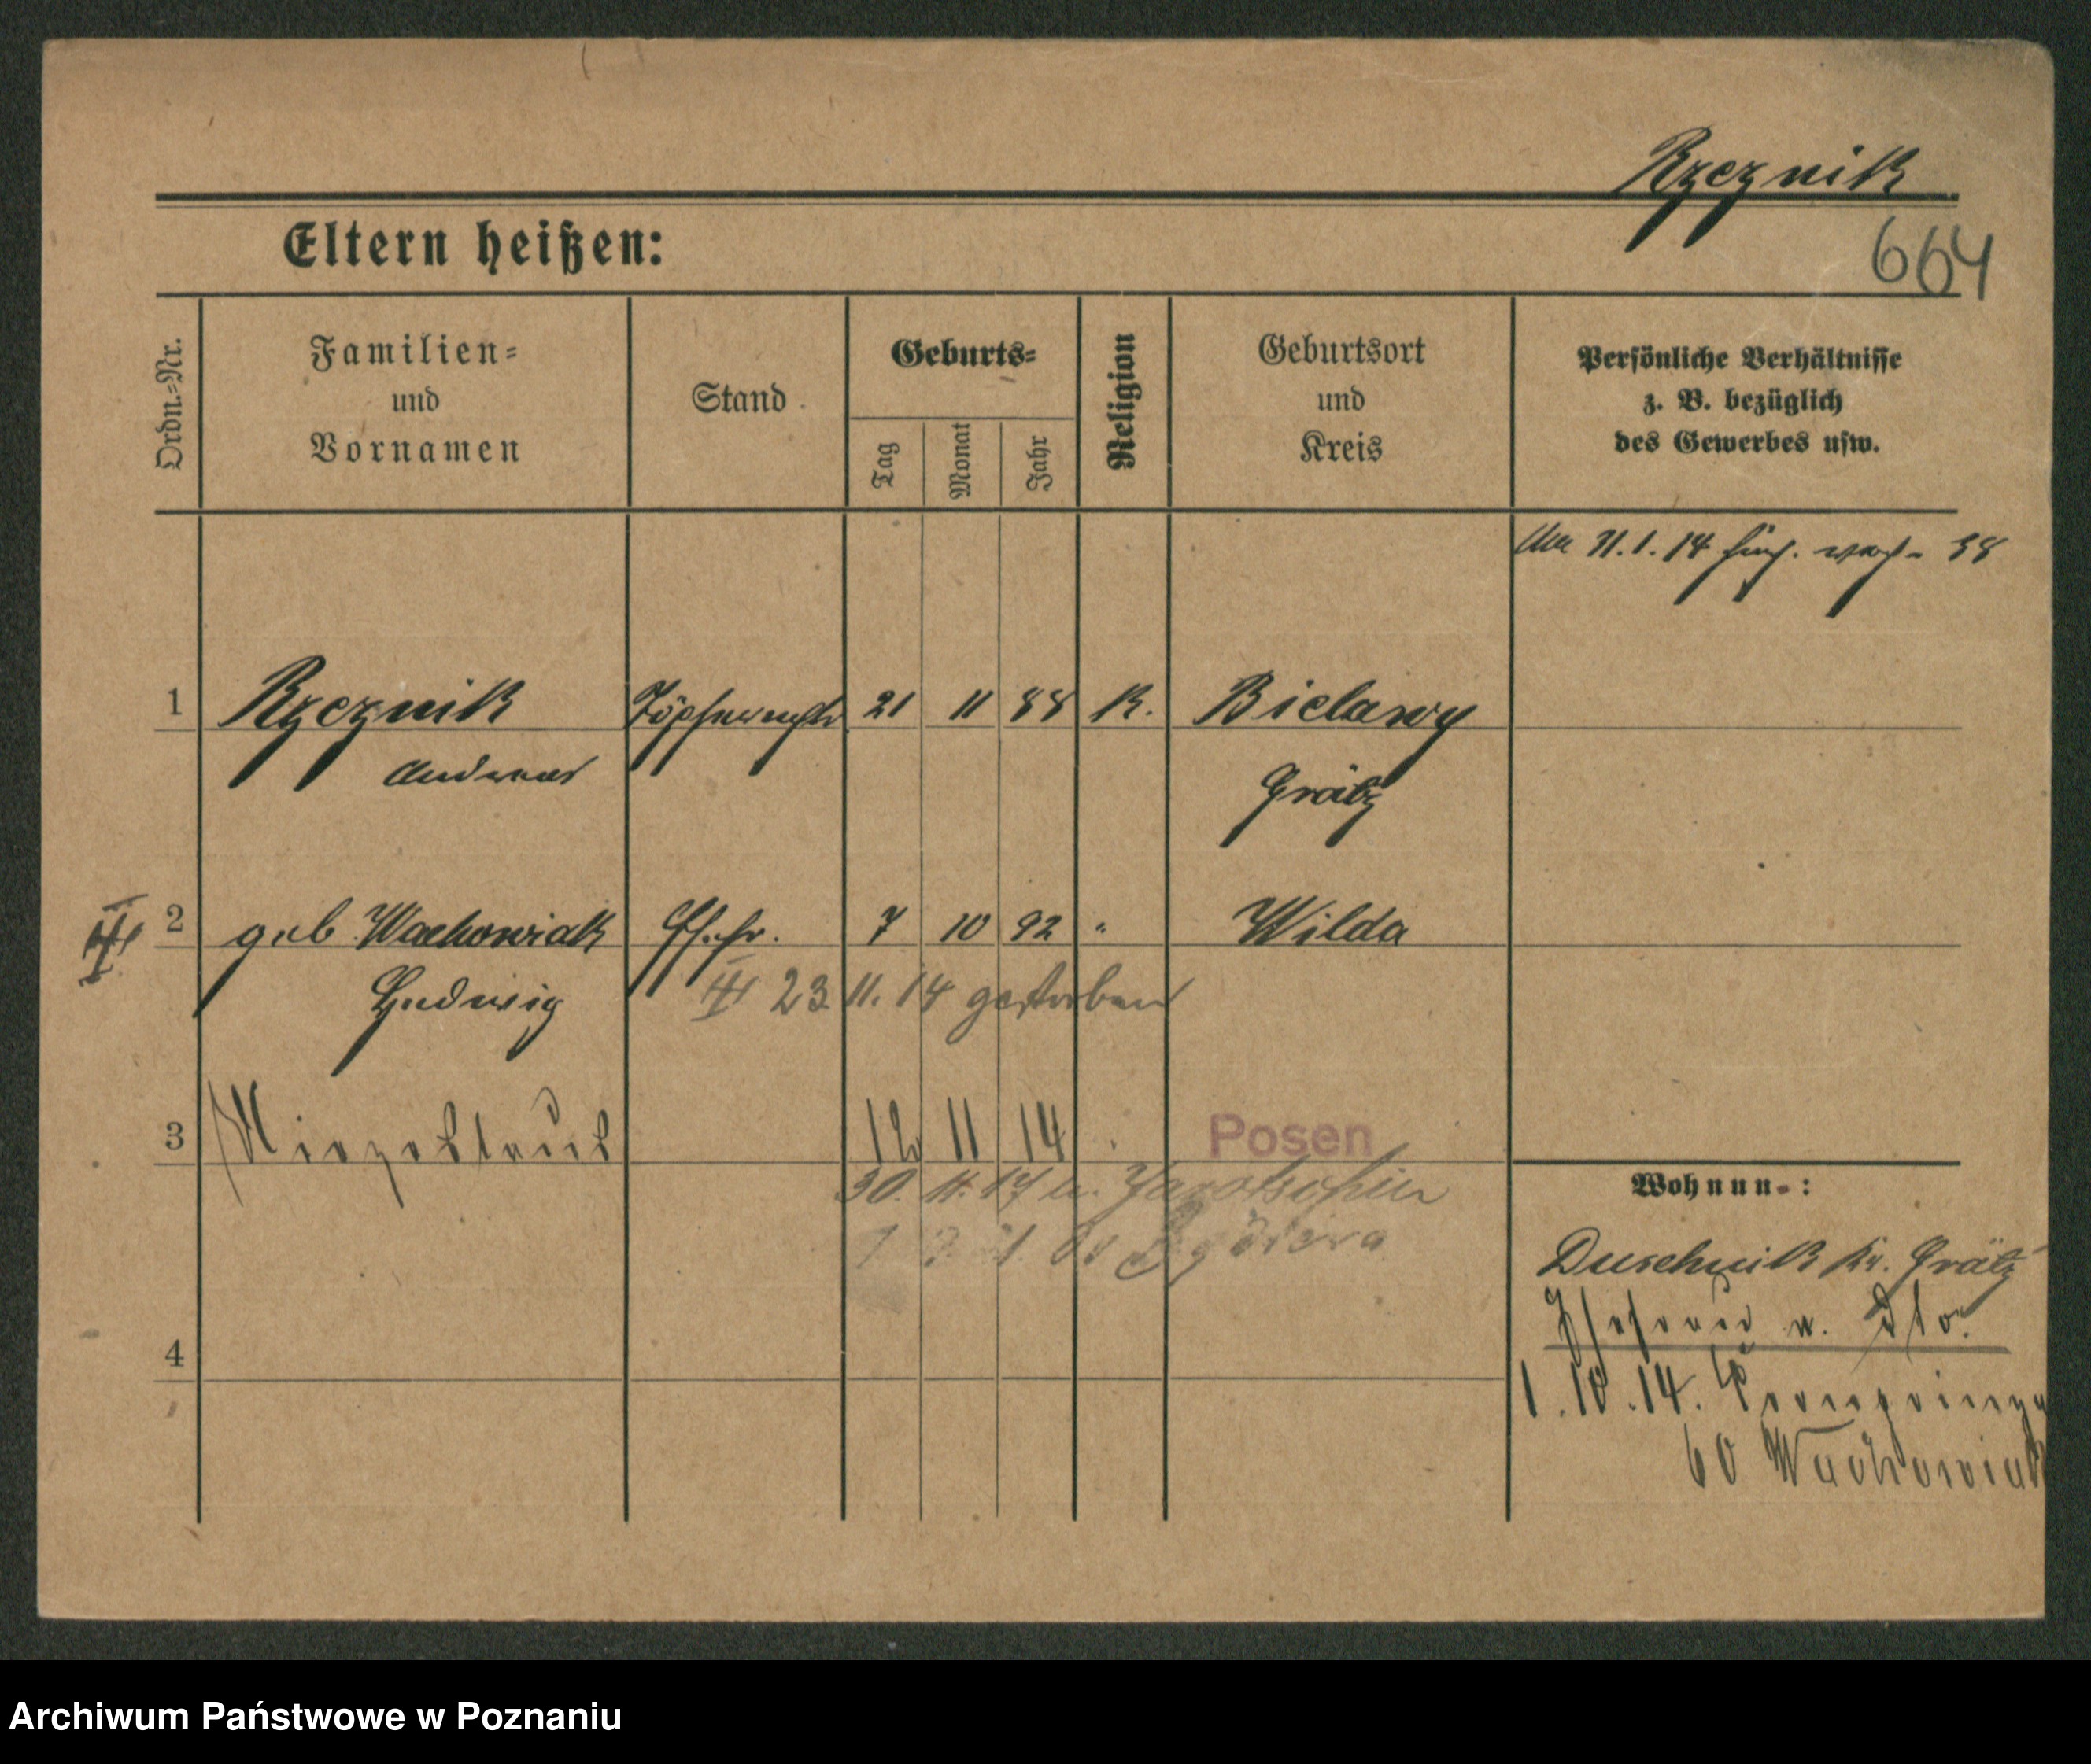 Rzeznik
664
Eltern heißen:
Ordn.=Nr.
Familien=
und
Vornamen
Stand
Geburts=
Tag
Monat
Jahr
Religion
Geburtsort
und
Kreis
Persönliche Verhältnisse
z. B. bezüglich
des Gewerbes usw.
1 Rzeznik 21 11 88 K. Bielawy
Andreas Grätz
2 geb Wachowiak Ehefr. 7 10 92 " Wilda
Hedwig 23 11. 14 gestorben
3 Mieczislaus 12 11 14 Posen
30. 11. 14 n. Jarotschin
Wohnun=:
Duschnik Kr. Grätz
Ehefrau n. dto.
1.10.14. Kronprinz
60 Wachowiak
4
Archiwum Państwowe w Poznaniu